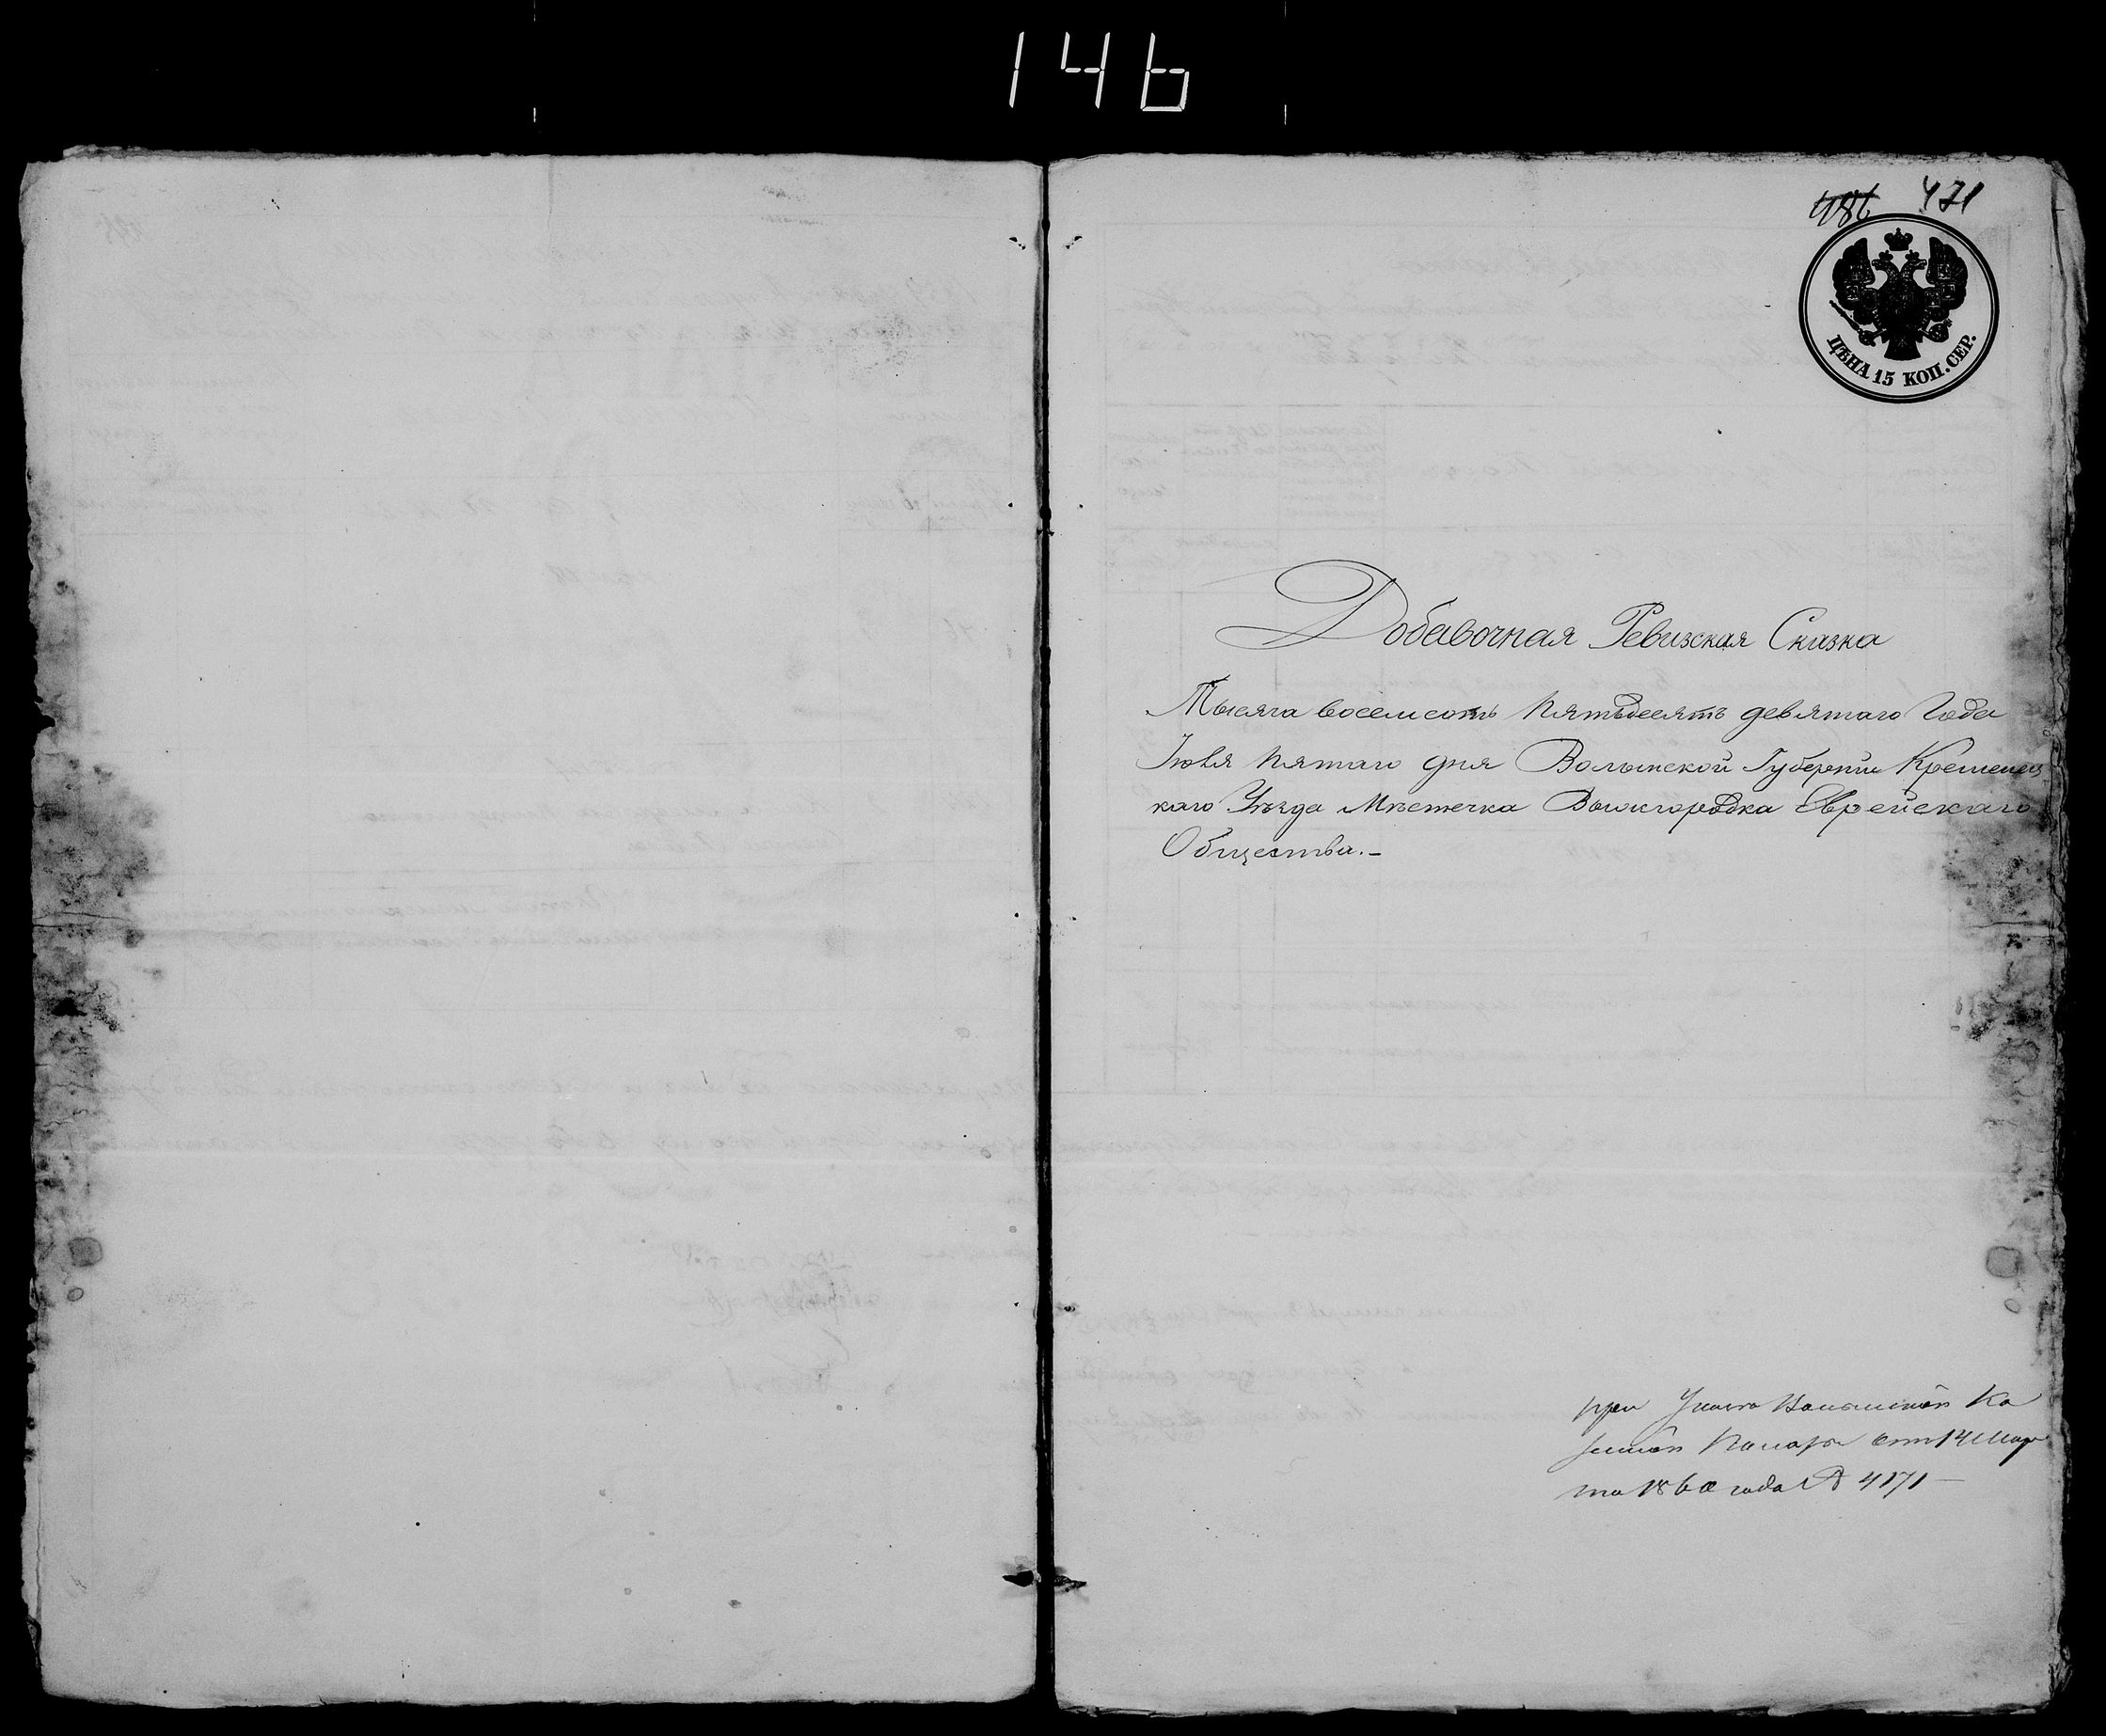 146
486 471
ЦѢНА 15 КОП. СЕР.
Добавочная Ревизская Сказка
Тысяча восемсотъ пятьдесятъ девятаго Года
Іюля пятаго дня Волынской Губерніи Кременец
каго Уѣзда Мѣстечка Вышгородка Еврейскаго
Общества.—
при Указѣ Волынской Ка
зенной Палаты отъ 14 Мар
та 1860 года № 4171—